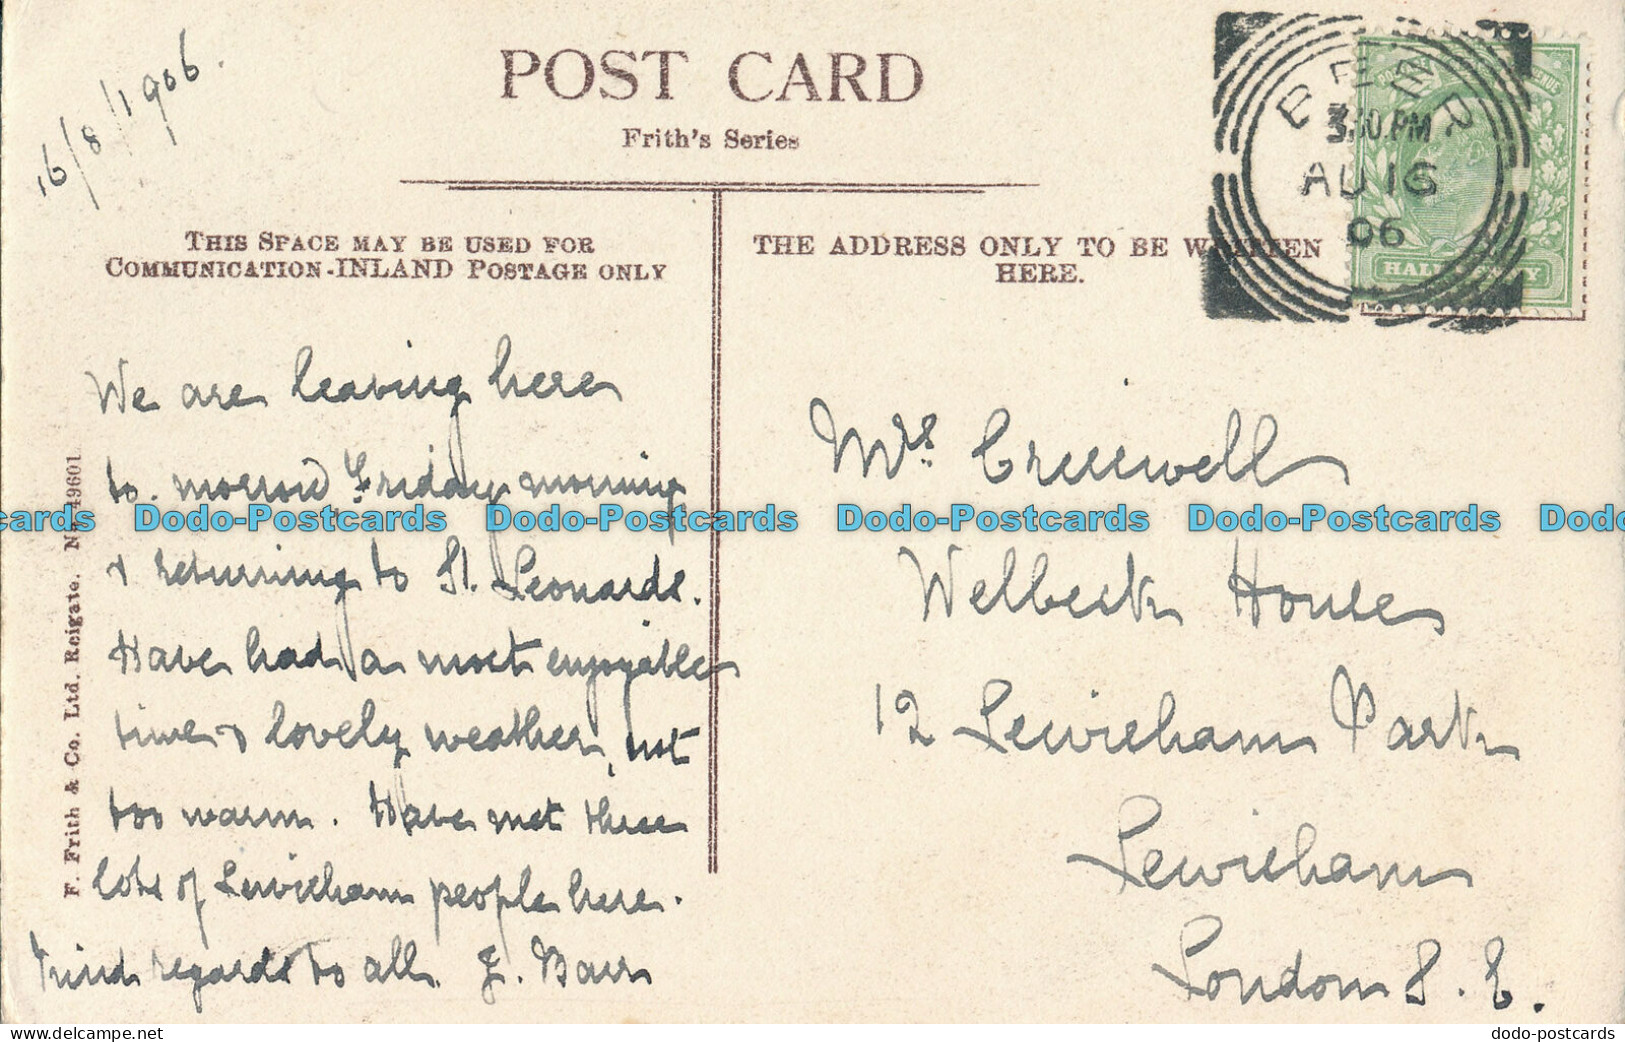 16/8/1906.
POST CARD
Frith's Series
BEER
3.30.PM
AU 16
06
HALFPENNY
THIS SPACE MAY BE USED FOR
COMMUNICATION-INLAND POSTAGE ONLY
THE ADDRESS ONLY TO BE WRITTEN
HERE.
We are leaving here
to-morrow Friday morning
& returning to St. Leonards.
Have had a most enjoyable
time & lovely weather, not
too warm. Have met
lots of Lewisham people here.
Kind regards to all. Barr
Mrs. Cresswell
Welbeck House
12 Lewisham Park
Lewisham
London S. E.
F. Frith & Co. Ltd. Reigate. No. 49601
Dodo-Postcards Dodo-Postcards Dodo-Postcards Dodo-Postcards
dodo-postcards.com